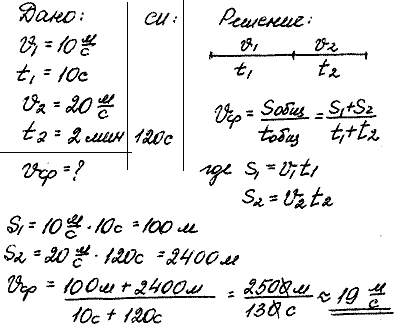 Дано: СИ: Решение:
v₁ = 10 м/с
t₁ = 10 с
v₂ = 20 м/с
t₂ = 2 мин 120 с
v_ср = ?
v₁ v₂
t₁ t₂
v_ср = S_общ / t_общ = (S₁ + S₂) / (t₁ + t₂)
где S₁ = v₁t₁
S₂ = v₂t₂
S₁ = 10 м/с · 10 с = 100 м
S₂ = 20 м/с · 120 с = 2400 м
v_ср = (100 м + 2400 м) / (10 с + 120 с) = 2500 м / 130 с ≈ 19 м/с